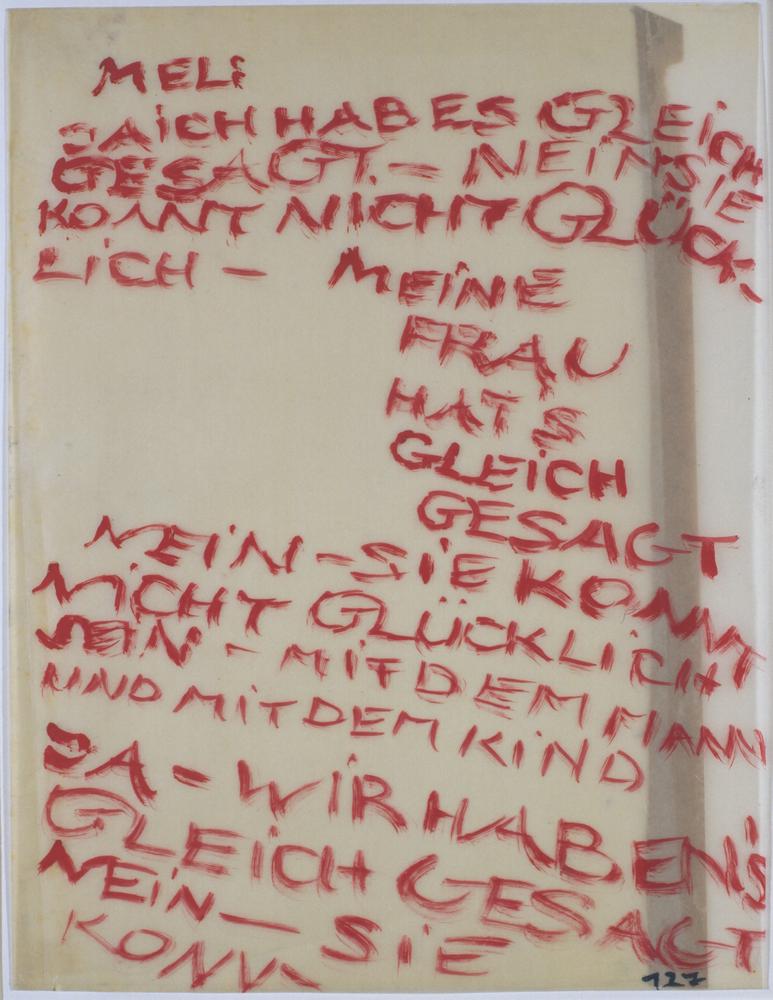 MELi
JA iCH HAB ES GLEiCH
GESAGT. — NEiN SIE
KONNT NICHT GLÜCK-
LiCH — MEiNE
FRAU
HAT S
GLEiCH
GESAGT
NEiN — SiE KONNT
NiCHT GLÜCKLiCH
SEiN - MiT DEM MANN
UND MiT DEM KiND
JA - WiR HABEN'S
GLEiCH GESAGT
NEiN — SiE
KONN
127